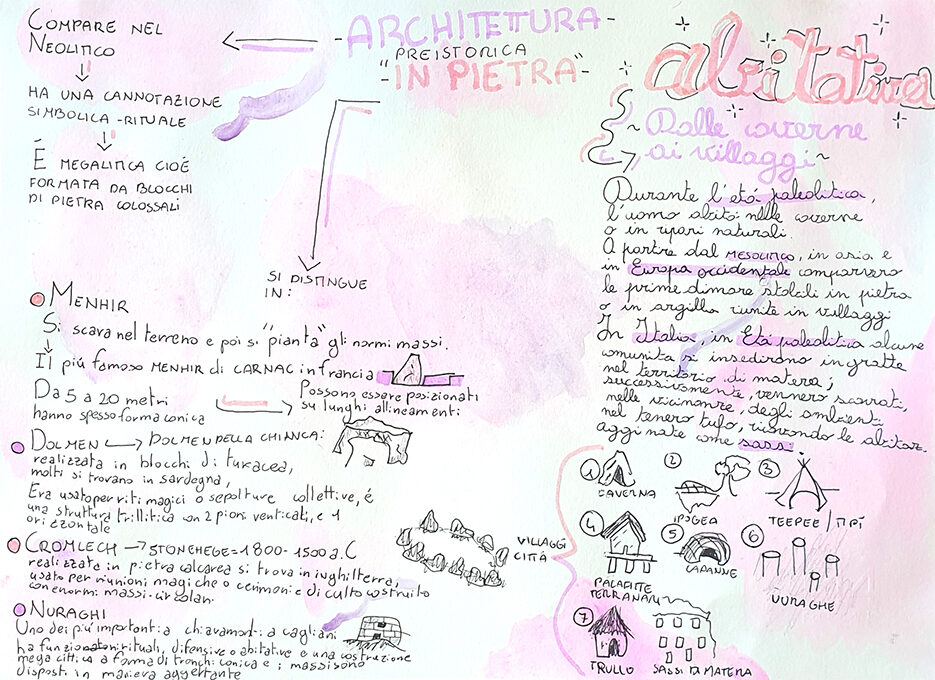 COMPARE NEL
NEOLITICO
HA UNA CANNOTAZIONE
SIMBOLICA-RITUALE
É MEGALITICA CIOÉ
FORMATA DA BLOCCHI
DI PIETRA COLOSSALI
-ARCHITETTURA-
PREISTORICA
"IN PIETRA"-
SI DISTINGUE
IN:
MENHIR
Si scava nel terreno e poi si "pianta" gli normi massi.
Il più famoso MENHIR di CARNAC in francia
Da 5 a 20 metri
hanno spesso forma conica
Possono essere posizionati
su lunghi allineamenti
DOLMEN → DOLMEN DELLA CHIANCA:
realizzata in blocchi di
molti si trovano in sardegna,
Era usato per riti magici o sepolture collettive, é
una struttura trillitica con 2 verticati, e 1
orizzontale
CROMLECH → STONEHEGE = 1800-1500 a.C
realizzata in pietra calcarea si trova in inghilterra,
usato per riunioni magiche o cerimonie di culto costruito
con enormi massi circolari
NURAGHI
Uno dei piú importanti a a cagliari
ha rituali, difensive o abitative e una costruzione
a forma di tronchi conica e i massi sono
disposti in maniera aggettante
abitativa
Dalle caverne
ai villaggi~
Durante l'etá paleolitica,
l'uomo abitó nelle caverne
o in ripari naturali.
A partire dal MESOLITICO, in asia e
in Europa occidentale comparvero
le prime dimore stabili in pietra
o in argilla riunite in villaggi
In Italia, in Etá paleolitica alcune
comunita si insedirono in grotte
nel territorio di matera;
successivamente, vennero scavati,
nelle vicinanze, degli ambienti
nel tenero tufo, ricavando le abitaz.
come sassi.
VILLAGGI
CITTÁ
1 CAVERNA
2 IPOGEA
3 TEEPEE/TIPÍ
4 PALAFITTE
5 CAPANNE
6
7 TRULLO
SASSI DI MATERA